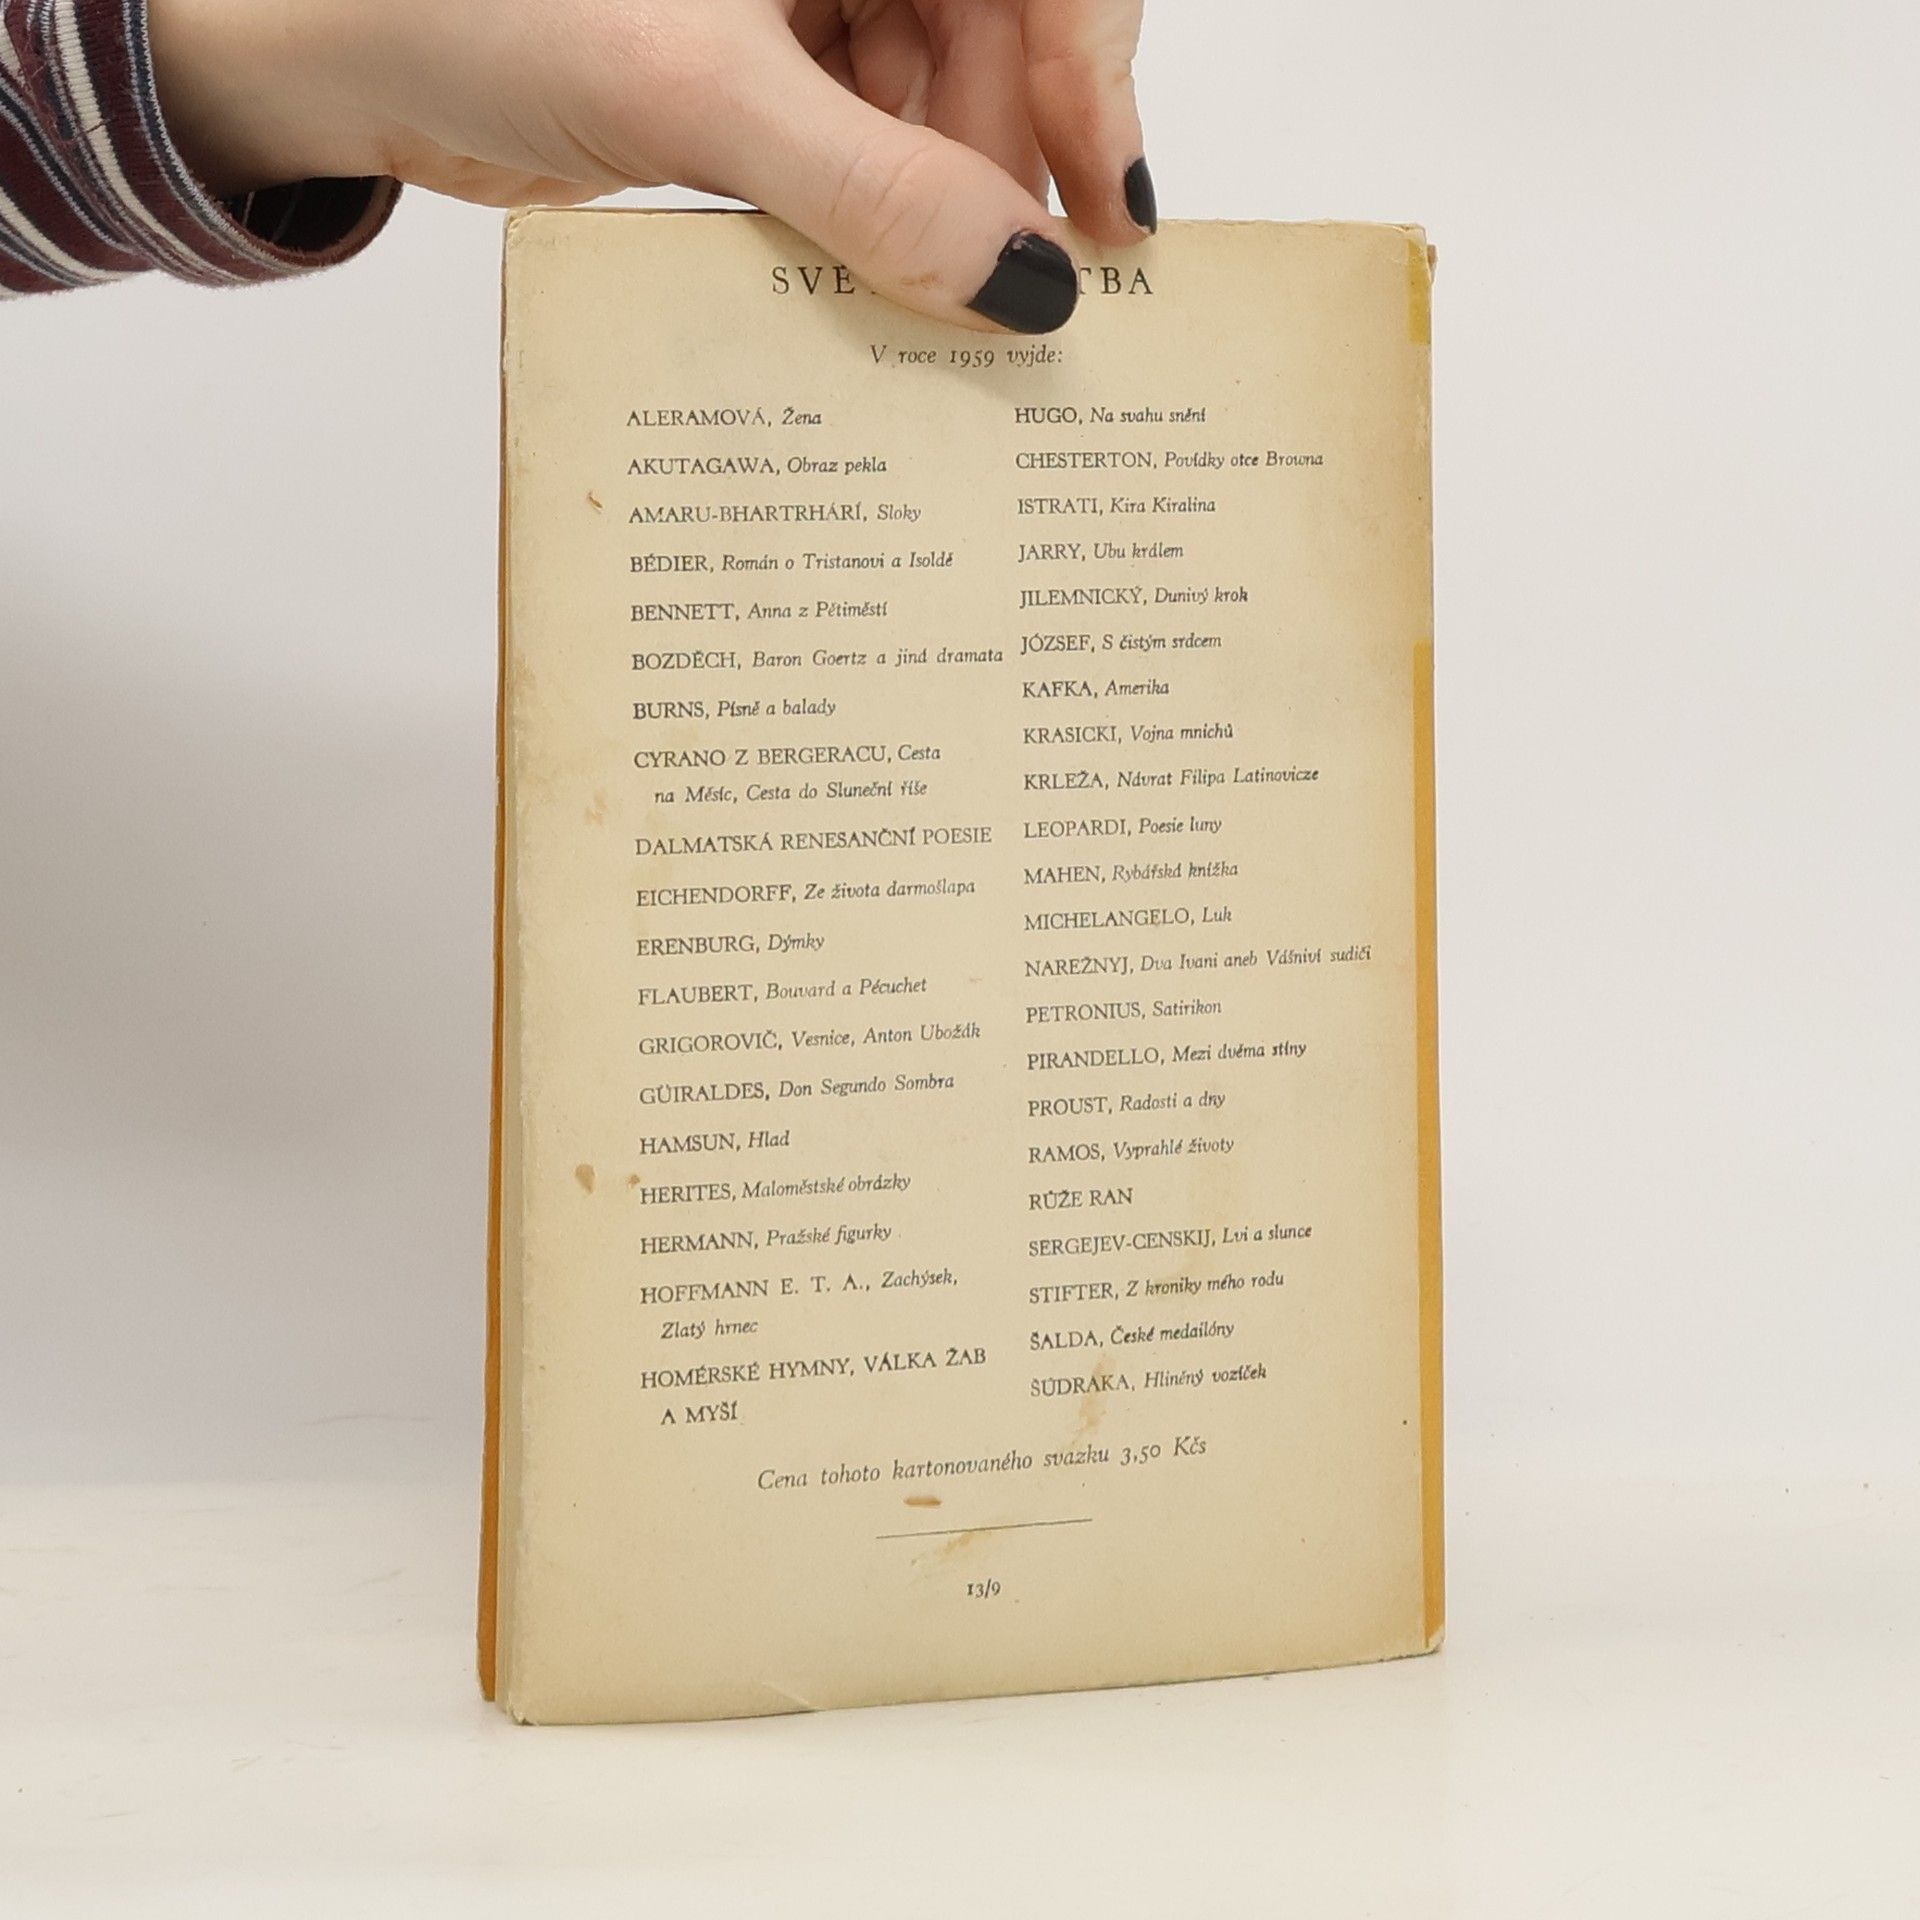 V roce 1959 vyjde:
ALERAMOVÁ, Žena
AKUTAGAWA, Obraz pekla
AMARU-BHARTRHÁRÍ, Sloky
BÉDIER, Román o Tristanovi a Isoldě
BENNETT, Anna z Pětiměstí
BOZDĚCH, Baron Goertz a jiná dramata
BURNS, Písně a balady
CYRANO Z BERGERACU, Cesta
na Měsíc, Cesta do Sluneční říše
DALMATSKÁ RENESANČNÍ POESIE
EICHENDORFF, Ze života darmošlapa
ERENBURG, Dýmky
FLAUBERT, Bouvard a Pécuchet
GRIGOROVIČ, Vesnice, Anton Ubožák
GÜIRALDES, Don Segundo Sombra
HAMSUN, Hlad
HERITES, Maloměstské obrázky
HERMANN, Pražské figurky
HOFFMANN E. T. A., Zachýsek,
Zlatý hrnec
HOMÉRSKÉ HYMNY, VÁLKA ŽAB
A MYŠÍ
HUGO, Na svahu snění
CHESTERTON, Povídky otce Browna
ISTRATI, Kira Kiralina
JARRY, Ubu králem
JILEMNICKÝ, Dunivý krok
JÓZSEF, S čistým srdcem
KAFKA, Amerika
KRASICKI, Vojna mnichů
KRLEŽA, Návrat Filipa Latinovicze
LEOPARDI, Poesie luny
MAHEN, Rybářská knížka
MICHELANGELO, Luk
NAREŽNYJ, Dva Ivani aneb Vášniví sudiči
PETRONIUS, Satirikon
PIRANDELLO, Mezi dvěma stíny
PROUST, Radosti a dny
RAMOS, Vyprahlé životy
RŮŽE RAN
SERGEJEV-CENSKIJ, Lvi a slunce
STIFTER, Z kroniky mého rodu
ŠALDA, České medailóny
ŠÚDRAKA, Hliněný vozíček
Cena tohoto kartonovaného svazku 3,50 Kčs
13/9